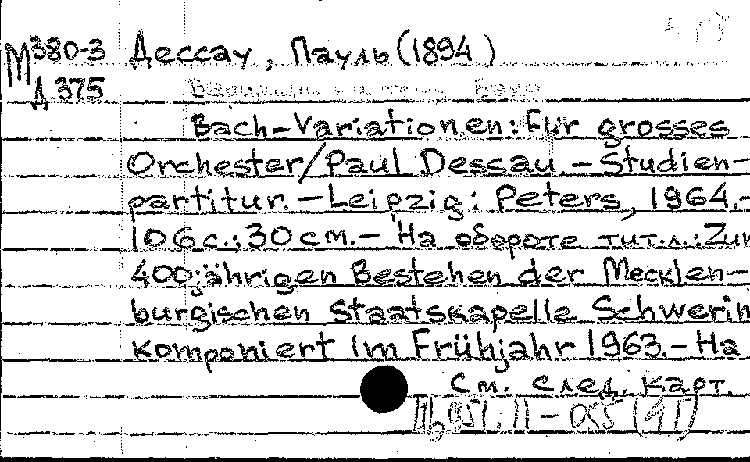 М380-3 Дессау, Пауль (1894)
Д 375
Bach-Variationen: für grosses
Orchester/Paul Dessau. – Studien-
partitur. – Leipzig: Peters, 1964. –
106 с.; 30 см. – На обороте тит.л.: Zur
400jährigen Bestehen der Mecklen-
burgischen Staatskapelle Schwerin
komponiert im Frühjahr 1963. – На
См. след. карт.